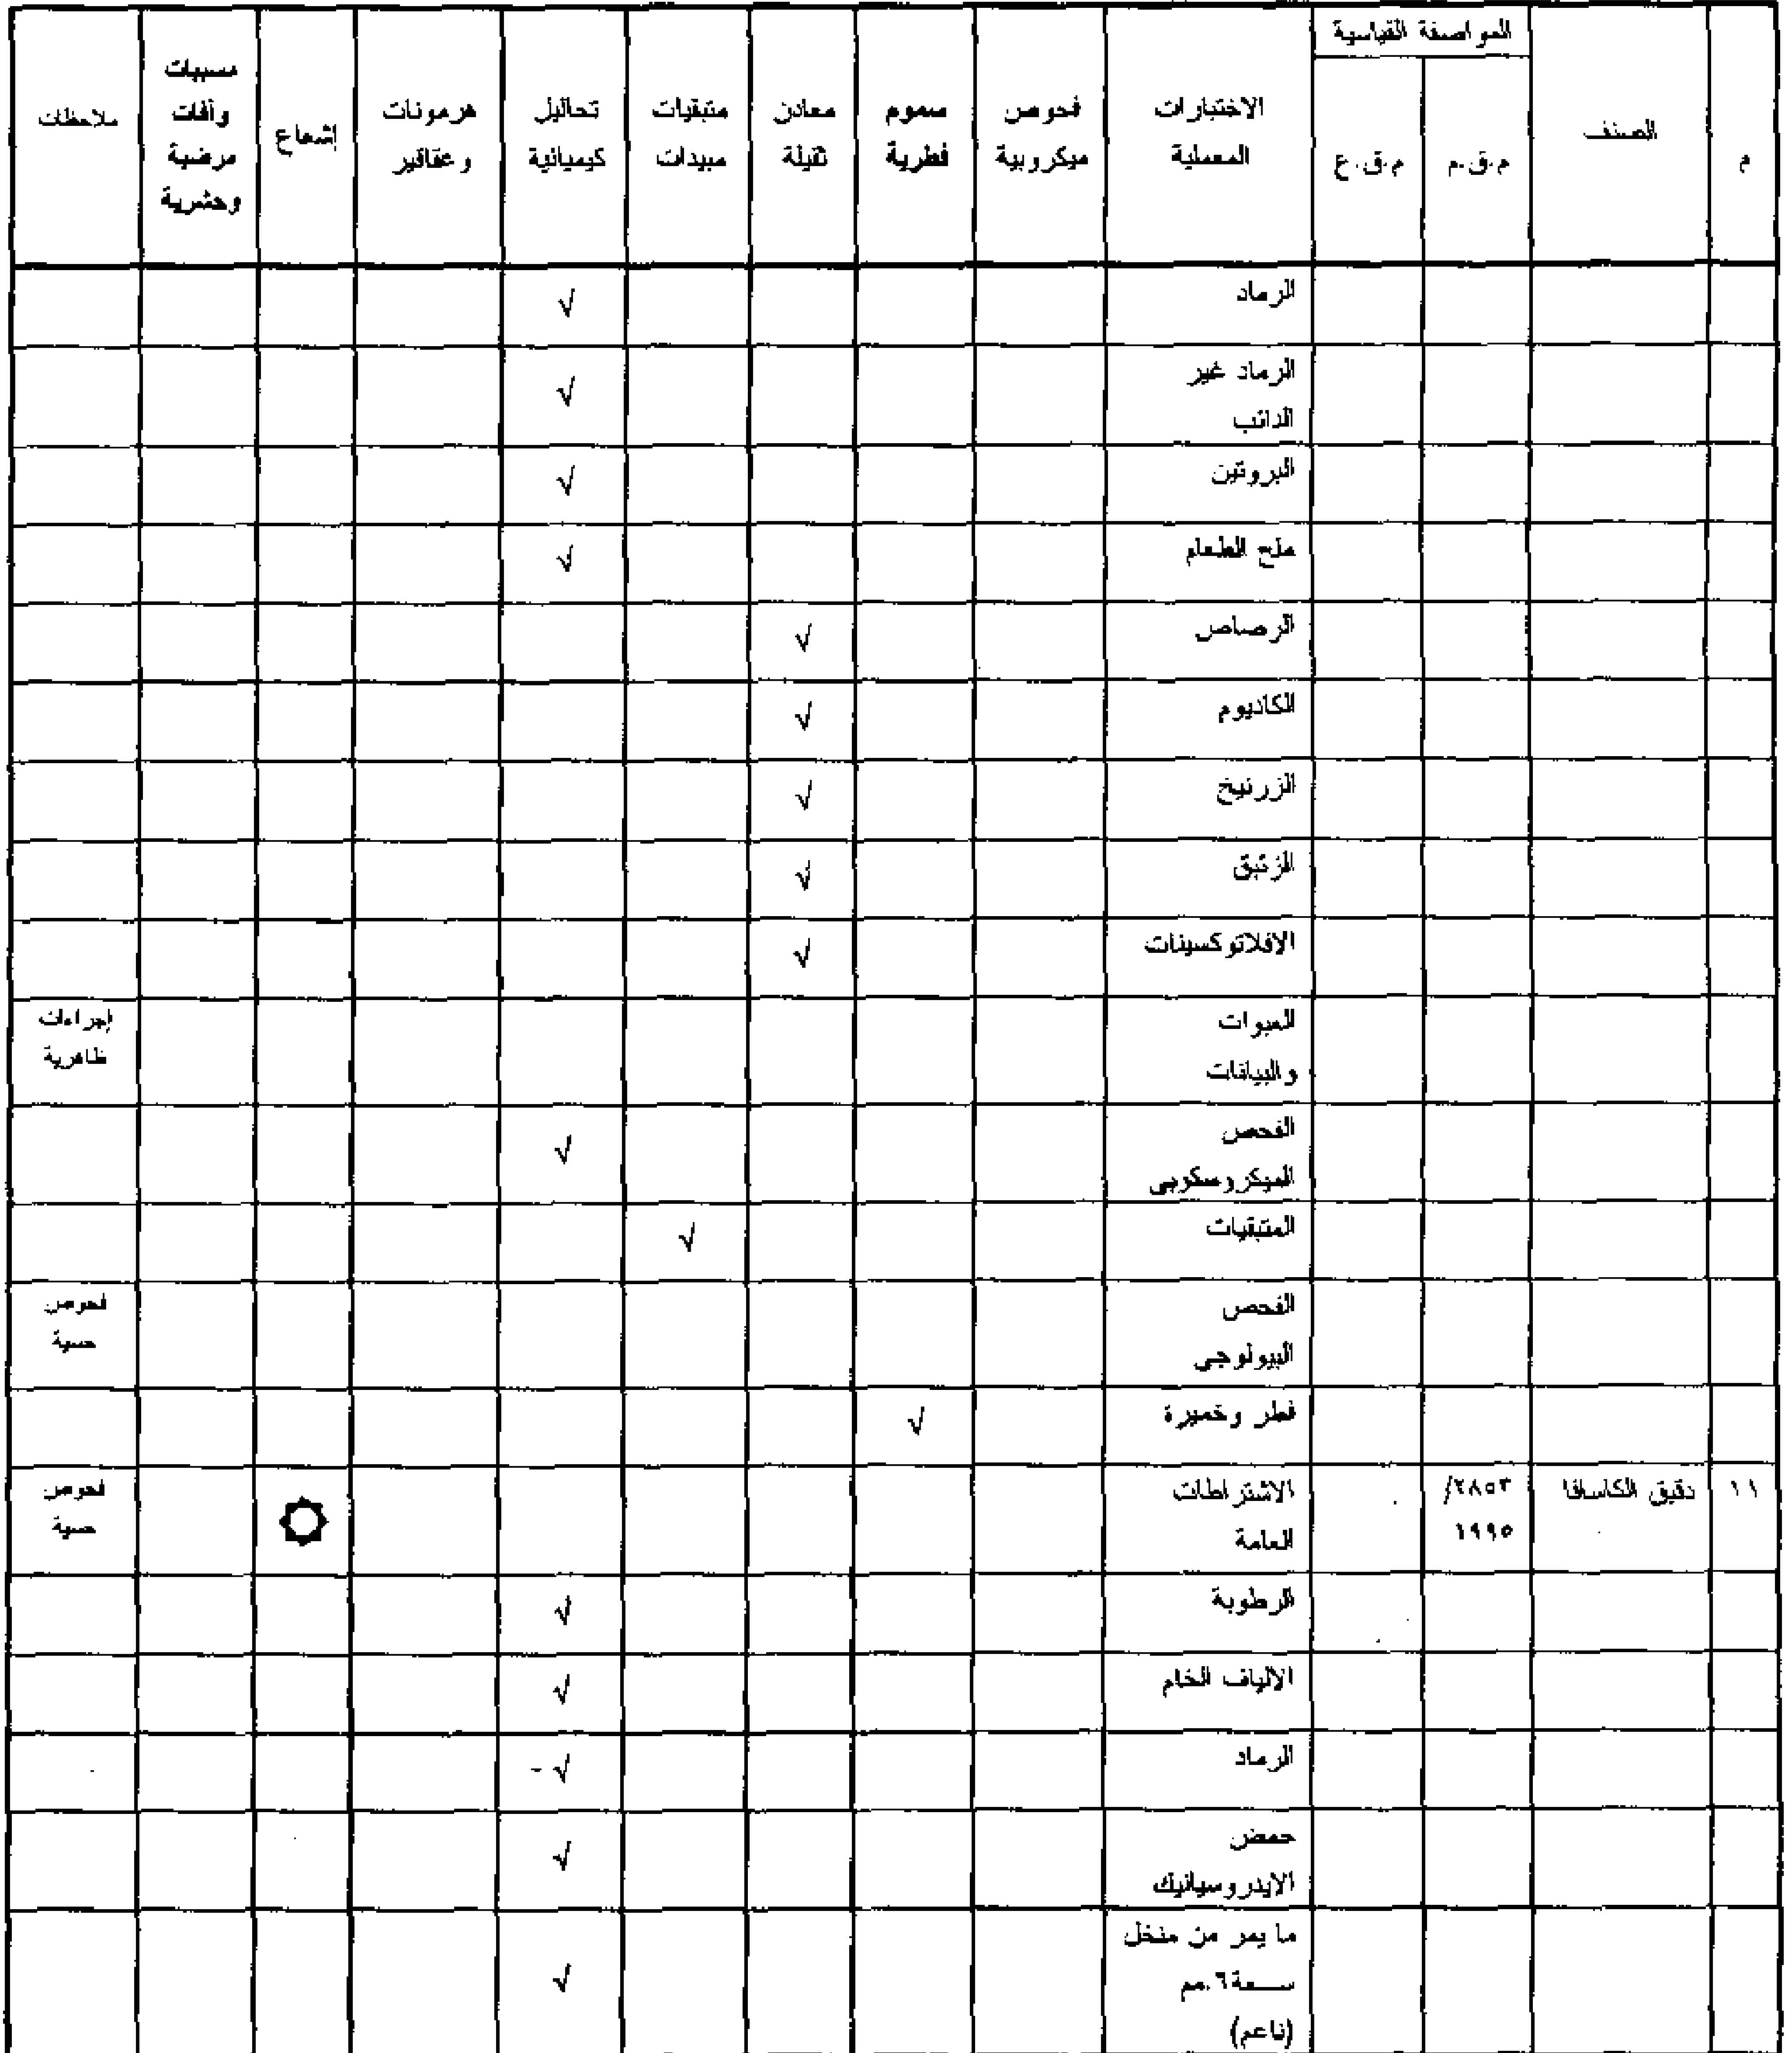 م
الصنف
المواصفة القياسية
م.ق.م
م.ق.ع
الاختبارات
المعملية
فحوص
ميكروبية
سموم
فطرية
معادن
ثقيلة
متبقيات
مبيدات
تحاليل
كيميائية
هرمونات
وعقاقير
إشعاع
مسببات
وآفات
مرضية
وحشرية
ملاحظات
الرماد
√
الرماد غير
الذائب
√
البروتين
√
ملح الطعام
√
الرصاص
√
الكاديوم
√
الزرنيخ
√
الزئبق
√
الافلاتوكسينات
√
العبوات
والبيانات
إجراءات
ظاهرية
الفحص
الميكروسكوبى
√
المتبقيات
√
الفحص
البيولوجى
فحوص
حسية
فطر وخميرة
√
١١
دقيق الكاسافا
٢٨٥٣/
١٩٩٥
الاشتراطات
العامة
فحوص
حسية
الرطوبة
√
الالياف الخام
√
الرماد
√
حمض
الايدروسيانيك
√
ما يمر من منخل
سعة٦.مم
(ناعم)
√